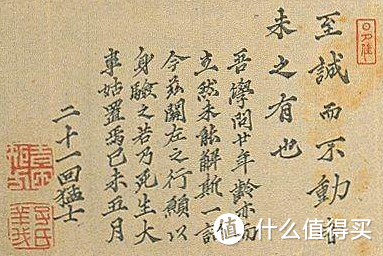 至誠而不動者
未之有也
吾學問廿年齡亦而
立然未能解斯一語
今茲關左之行願以
身驗之若乃死生大
事姑置焉己未五月
二十一回猛士
值 什么值得买